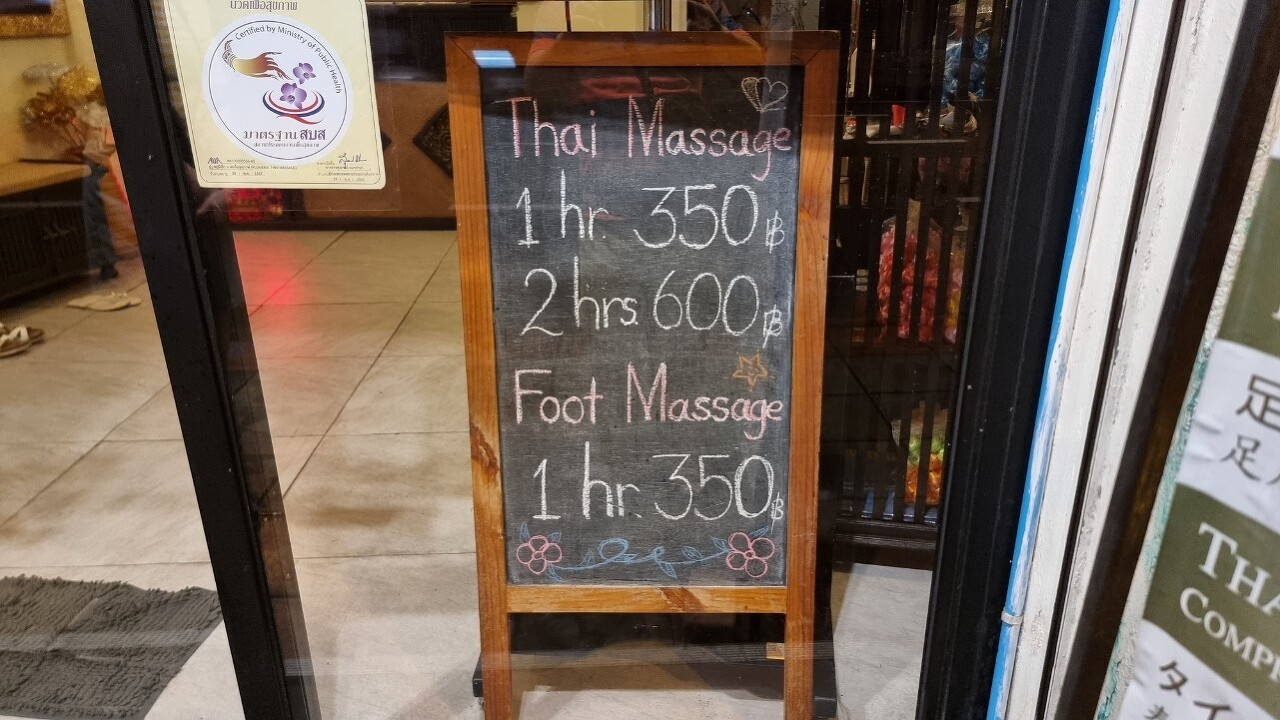 นวดเพื่อสุขภาพ
Certified by Ministry of Public Health
มาตรฐาน สบส
Thai Massage
1 hr 350฿
2 hrs. 600฿
Foot Massage
1 hr. 350฿
足
足
THA
COMP
タイ